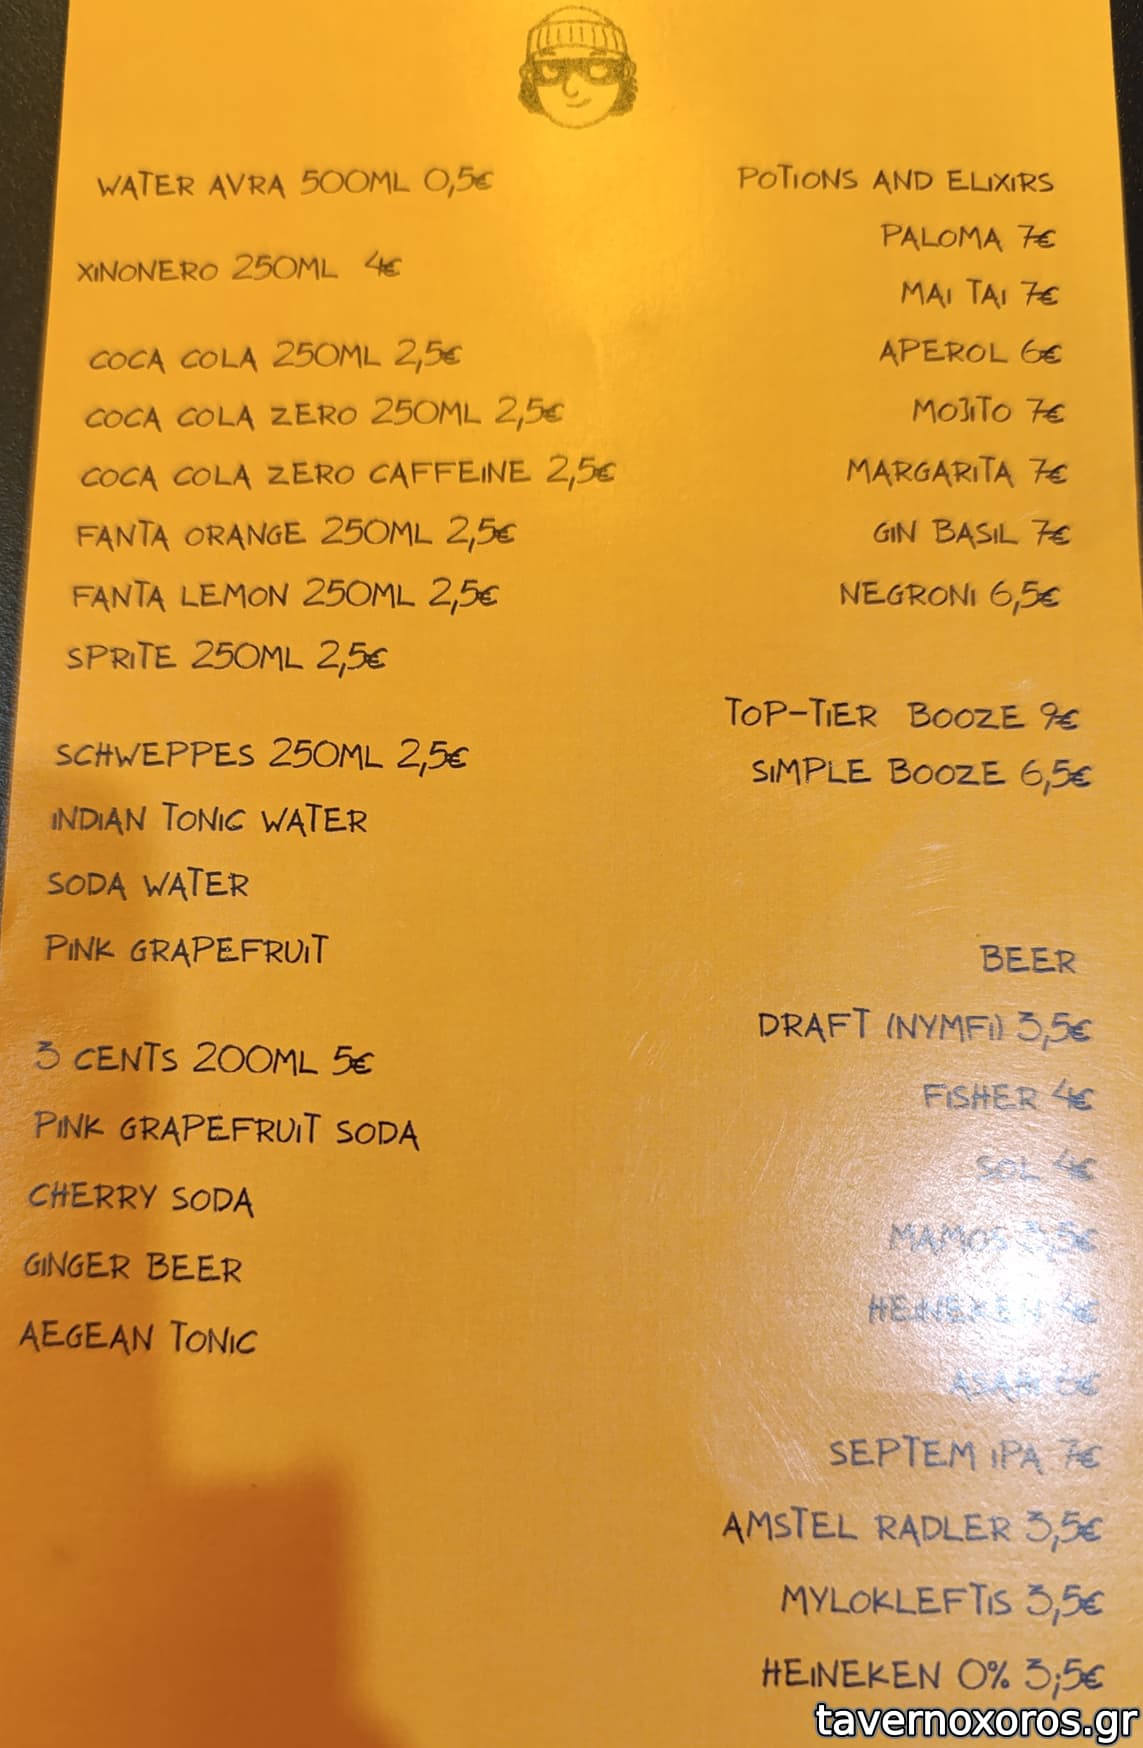 WATER AVRA 500ML 0,5€
XINONERO 250ML 4€
COCA COLA 250ML 2,5€
COCA COLA ZERO 250ML 2,5€
COCA COLA ZERO CAFFEINE 2,5€
FANTA ORANGE 250ML 2,5€
FANTA LEMON 250ML 2,5€
SPRITE 250ML 2,5€
SCHWEPPES 250ML 2,5€
INDIAN TONIC WATER
SODA WATER
PINK GRAPEFRUIT
3 CENTS 200ML 5€
PINK GRAPEFRUIT SODA
CHERRY SODA
GINGER BEER
AEGEAN TONIC
POTIONS AND ELIXIRS
PALOMA 7€
MAI TAI 7€
APEROL 6€
MOJITO 7€
MARGARITA 7€
GIN BASIL 7€
NEGRONI 6,5€
TOP-TIER BOOZE 9€
SIMPLE BOOZE 6,5€
BEER
DRAFT (NYMFI) 3,5€
FISHER 4€
SOL 4€
MAMOS 3,5€
HEINEKEN 4€
ASAHI
SEPTEM IPA 7€
AMSTEL RADLER 3,5€
MYLOKLEFTIS 3,5€
HEINEKEN 0% 3;5€
tavernoxoros.gr